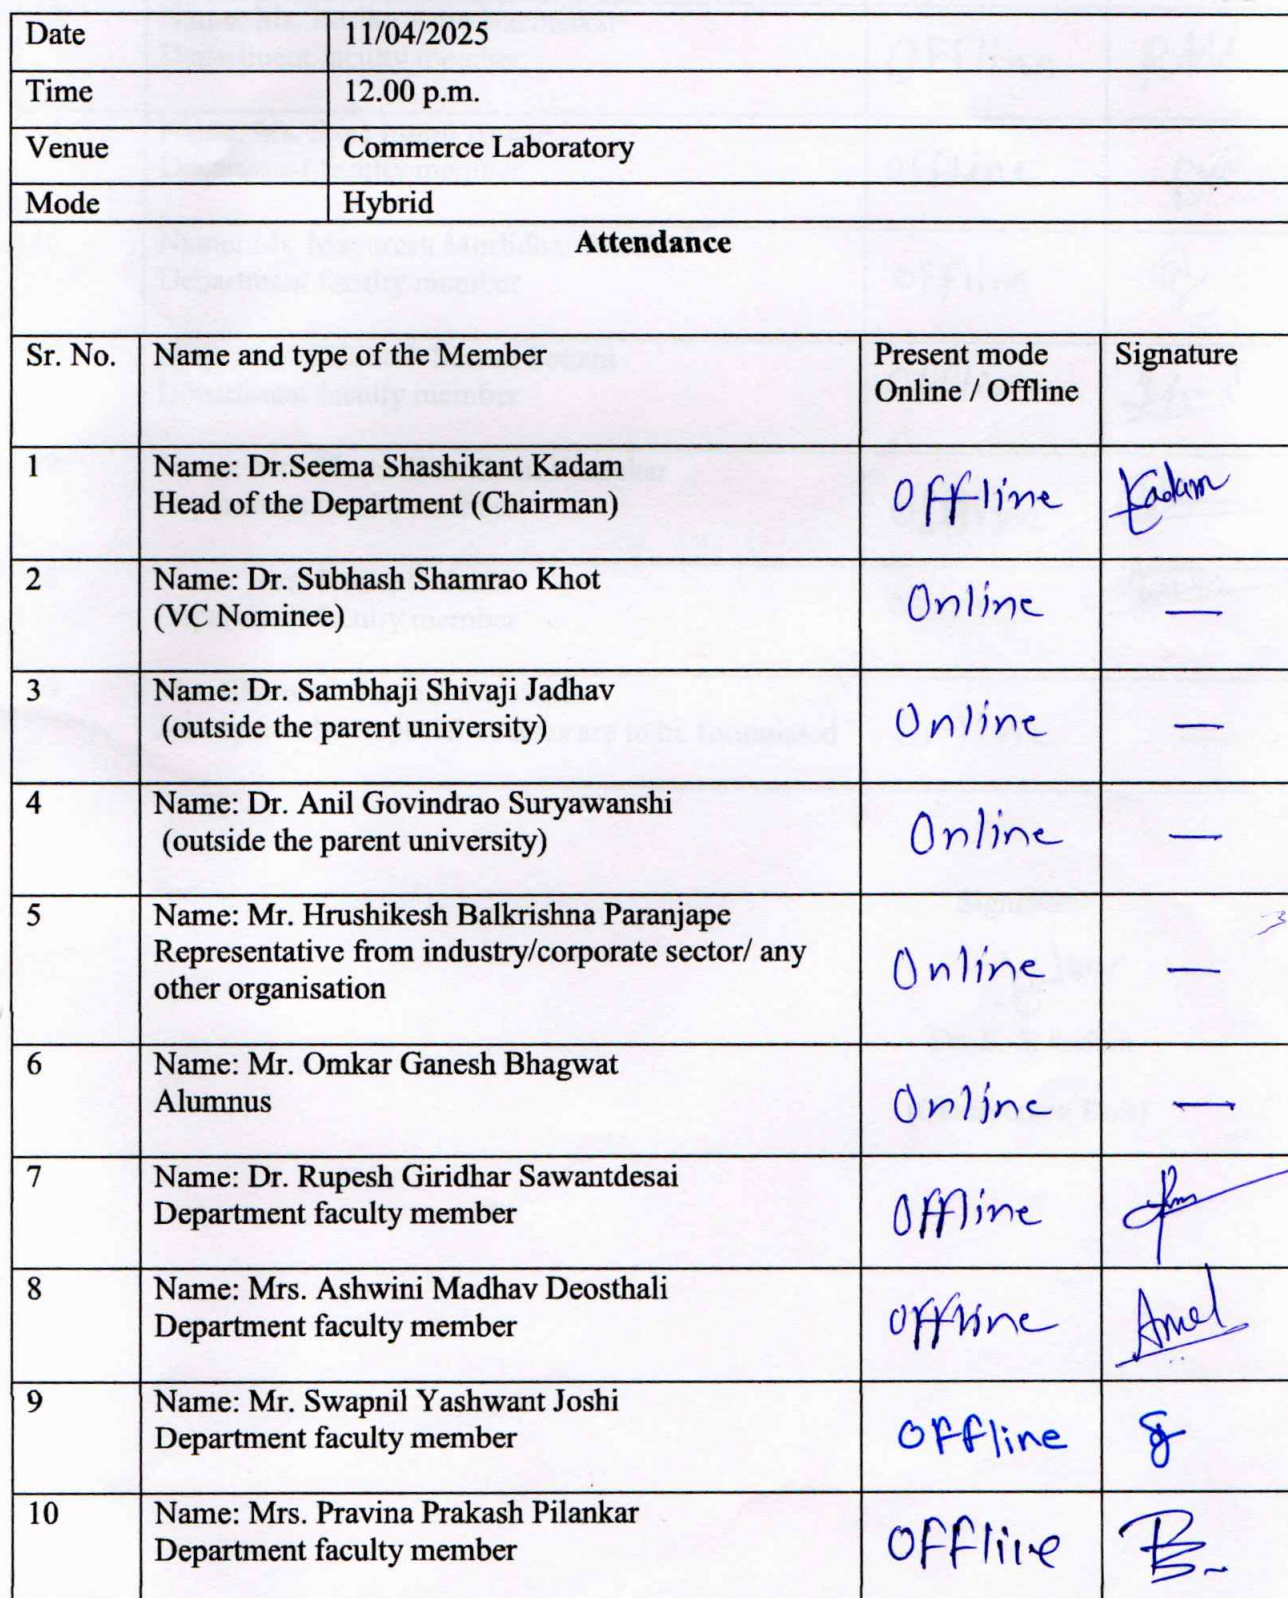 Date 11/04/2025
Time 12.00 p.m.
Venue Commerce Laboratory
Mode Hybrid
Attendance
Sr. No. Name and type of the Member Present mode Signature
Online / Offline
1 Name: Dr.Seema Shashikant Kadam
Head of the Department (Chairman) Offline Kadam
2 Name: Dr. Subhash Shamrao Khot
(VC Nominee) Online —
3 Name: Dr. Sambhaji Shivaji Jadhav
(outside the parent university) Online —
4 Name: Dr. Anil Govindrao Suryawanshi
(outside the parent university) Online —
5 Name: Mr. Hrushikesh Balkrishna Paranjape
Representative from industry/corporate sector/ any Online —
other organisation
6 Name: Mr. Omkar Ganesh Bhagwat
Alumnus Online —
7 Name: Dr. Rupesh Giridhar Sawantdesai
Department faculty member Offline
8 Name: Mrs. Ashwini Madhav Deosthali
Department faculty member Offline
9 Name: Mr. Swapnil Yashwant Joshi
Department faculty member Offline
10 Name: Mrs. Pravina Prakash Pilankar
Department faculty member Offline